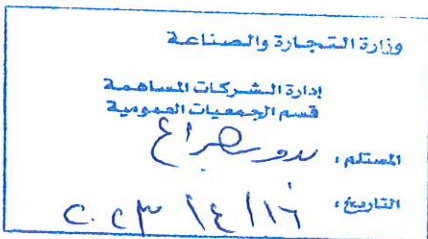 وزارة التجارة والصناعة
إدارة الشركات المساهمة
قسم الجمعيات العمومية
المستلم :
التاريخ : ٢٠٢٣ / ٤ / ١٦